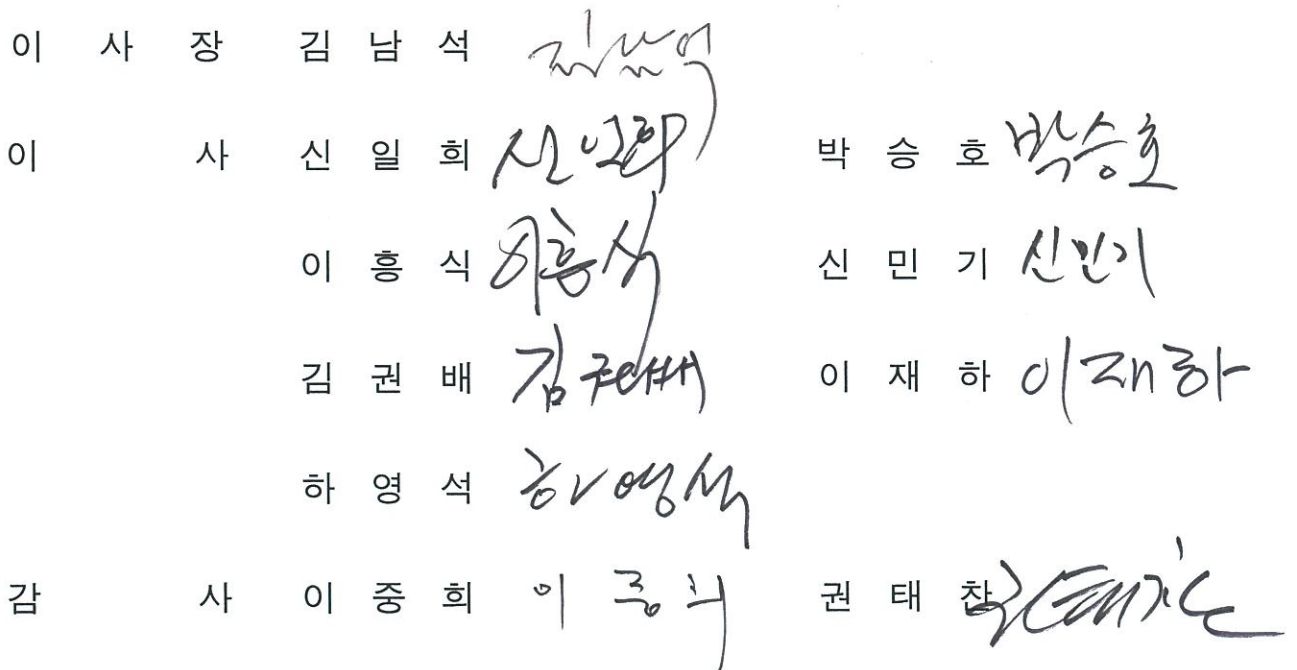 이 사 장 김 남 석 김남석
이 사 신 일 희 신일희 박 승 호 박승호
이 흥 식 이흥식 신 민 기 신민기
김 권 배 김권배 이 재 하 이재하
하 영 석 하영석
감 사 이 중 희 이중희 권 태 찬 권태찬